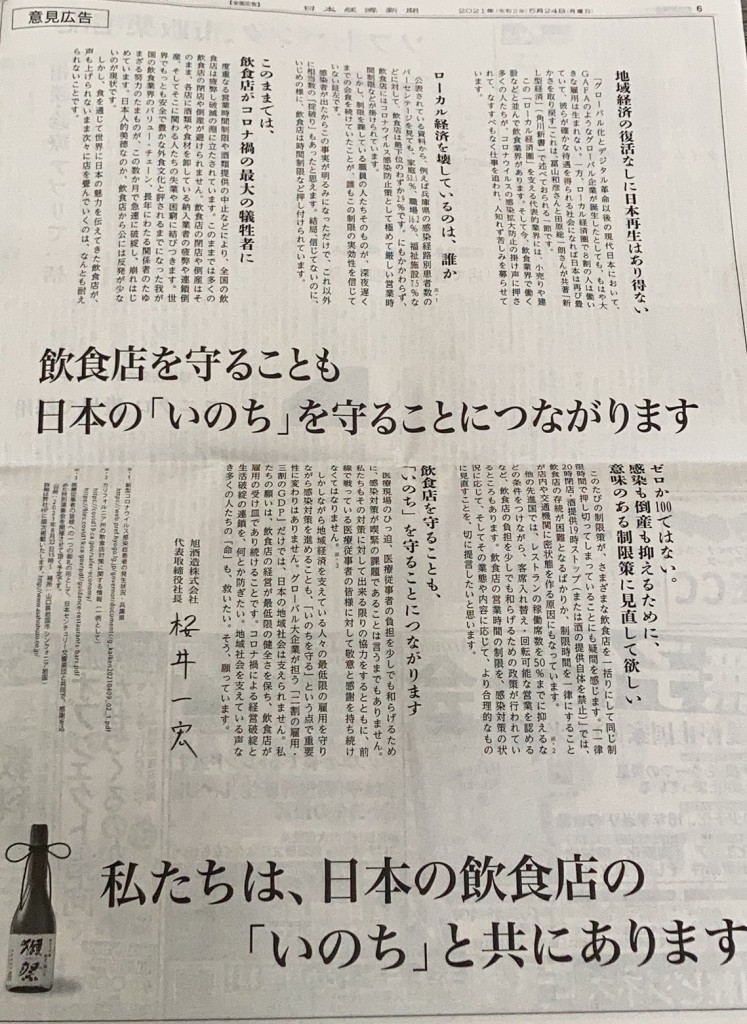 意見広告
【全面広告】
日本経済新聞
2021年(令和3年)5月24日(月曜日)
6
地域経済の復活なしに日本再生はあり得ない
「グローバル化とデジタル革命以後の現代日本において、
GAFAのようなグローバル企業が誕生したとしても、もはや大
きな雇用は生まれない。一方、ローカル経済圏で8割の人は働い
ていて、彼らが確かな待遇を得られる社会になれば日本は再び豊
かさを取り戻す」これは、冨山和彦さんと田原総一朗さんが共著『新
L型経済』(角川新書)で述べておられる一節です。
この「ローカル経済圏」を支える代表的業界には、小売りや建
設などと並んで飲食業界があります。そして今、飲食業界で働く
多くの人たちが、コロナウイルスの感染拡大防止の掛け声に押さ
れて、なすすべもなく仕事を追われ、人知れず苦しみを募らせて
います。
ローカル経済を壊しているのは、誰か
公表されている資料から、例えば兵庫県の感染経路別患者数の
パーセンテージを見ても、家庭51%、職場14%、福祉施設7.5%な
どに対して、飲食店は最下位のわずか2.9%です。にもかかわらず、
飲食店にはコロナウイルス感染防止策として極めて厳しい営業時
間制限などが掛けられています。
しかし、制限を課している職員の人たちそのものが、深夜遅く
までの会食を続けていたことが、誰もこの制限の実効性を信じて
いない証左です。
感染者が出たからこの事実が明るみになっただけで、これ以外
に相当数の「掟破り」もあったと思えます。結局、信じてないのに、
いじめの様に、飲食店は時間制限など押し付けられています。
このままでは、
飲食店がコロナ禍の最大の犠牲者に
度重なる営業時間制限や酒類提供の中止などにより、全国の飲
食店は疲弊し破滅の淵に立たされています。このままでは多くの
飲食店の閉店や倒産が避けられません。飲食店の閉店や倒産はそ
のまま、各店に酒類や食材を卸している納入業者の疲弊や連鎖倒
産、そしてそこに関わる人たちの失業や困窮に結びつきます。世
界でもっとも安全で豊かな外食文化と評されるまでになった我が
国の飲食業界のバリュー・チェーン、長年にわたる関係者のたゆ
まざる努力のたまものが、この数か月で急速に破綻し、崩れはじ
めています。日本人的美徳なのか、飲食店から公には反発が少な
いのが現状です。
しかし、食を通じて世界に日本の魅力を伝えてきた飲食店が、
声も上げられないまま次々に店を畳んでいくのは、なんとも耐え
られないことです。
飲食店を守ることも
日本の「いのち」を守ることにつながります
ゼロか100ではない。
感染も倒産も抑えるために、
意味のある制限策に見直して欲しい
このたびの制限策が、さまざまな飲食店を一括りにして同じ制
限時間で押し切ってしまっていることにも疑問を感じます。「一律
20時閉店・酒提供19時ストップ(または酒の提供自体を禁止)」では、
飲食店の存続が困難となるばかりか、制限時間を一律にすること
が店内や交通機関に密状態を作る原因にもなっています。
他の先進国では、レストランの稼働席数を50%までに抑えるな
どの条件をつけながら、客席入れ替え・回転可能な営業を認める
など、飲食店の負担を少しでも和らげるための政策が行われてい
るところもあります。飲食店の営業時間の制限を、感染対策の状
況に応じて、そしてその業態や内容に応じて、より合理的なもの
に見直すことを、切に提言したいと思います。
飲食店を守ることも、
「いのち」を守ることにつながります
医療現場のひっ迫、医療従事者の負担を少しでも和らげるため
に、感染対策が喫緊の課題であることは言うまでもありません。
私たちもその対策に対して出来る限りの協力をするとともに、前
線で戦っている医療従事者の皆様に対して敬意と感謝を持ち続け
なくてはなりません。
しかしながら地域経済を支えている人々の最低限の雇用を守り
ながら感染対策を進めることも、「いのちを守る」という点で重要
性に変わりはありません。グローバル大企業が担う「二割の雇用・
三割のGDP」だけでは、日本の地域社会は支えられません。私
たちの願いは、飲食店の経営が最低限の健全さを保ち、飲食店が
雇用の受け皿であり続けることです。コロナ禍による経営破綻と
生活破綻の連鎖を、何とか防ぎたい。地域社会を支えている声な
き多くの人たちの「命」も、救いたい。そう、願っています。
旭酒造株式会社
代表取締役社長 桜井一宏
私たちは、日本の飲食店の
「いのち」と共にあります
獺祭